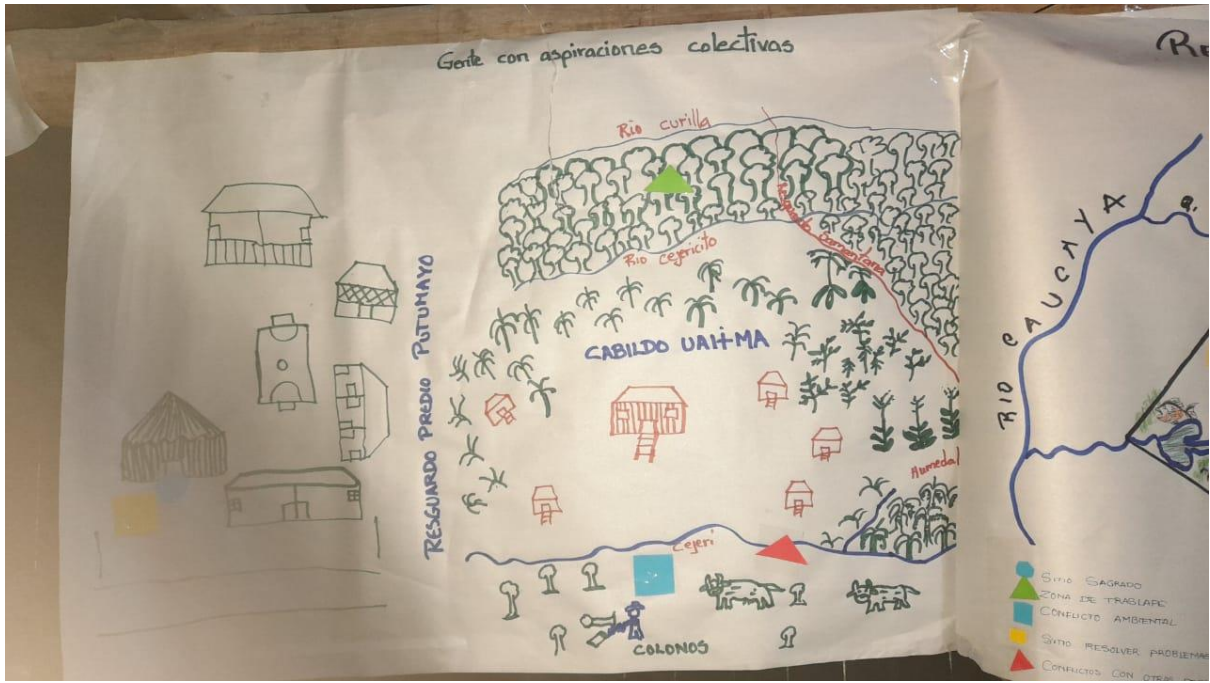 Gente con aspiraciones colectivas
Rio curilla
Rio cejericito
RESGUARDO PREDIO PUTUMAYO
CABILDO UAI+MA
Humedal
Cejeri
COLONOS
RE
RIO CAUCAYA
Q.
SITIO SAGRADO
ZONA DE TRASLAPE
CONFLICTO AMBIENTAL
SITIO RESOLVER PROBLEMAS
CONFLICTOS CON OTRAS